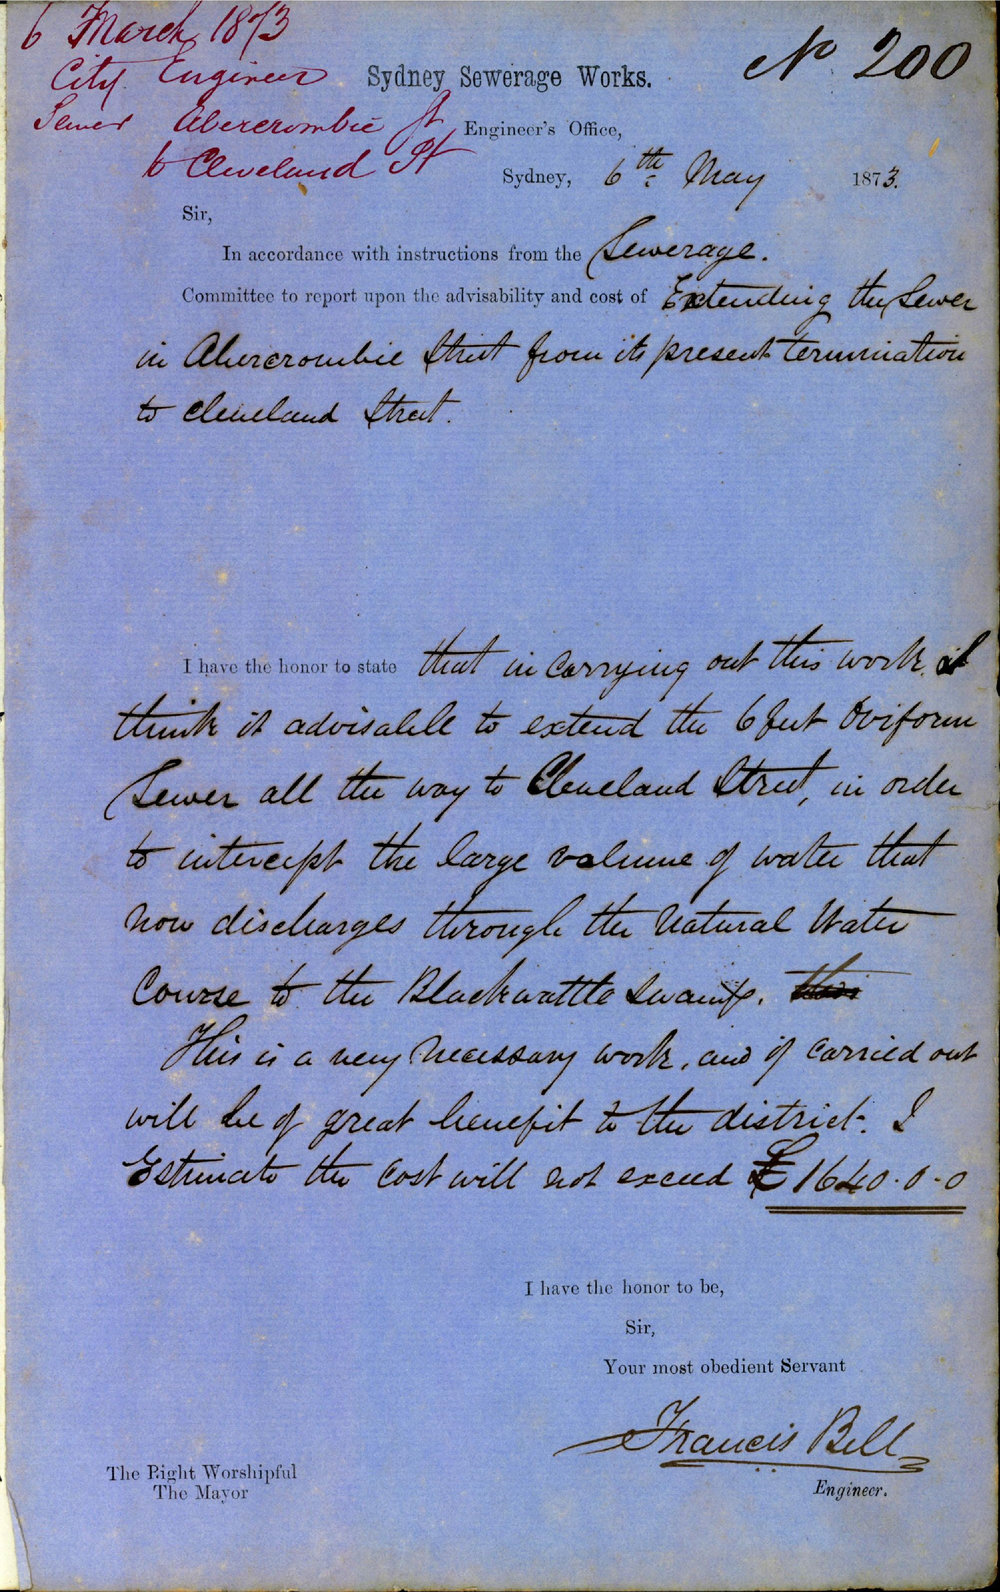 6 March 1873
City Engineer
Sewer Abercrombie St
to Cleveland St
No 200
Sydney Sewerage Works.
Engineer's Office,
Sydney, 6th May 1873.
Sir,
In accordance with instructions from the Sewerage.
Committee to report upon the advisability and cost of Extending the Sewer
in Abercrombie Street from its present termination
to Cleveland Street.
I have the honor to state that in carrying out this work, I
think it advisable to extend the 6 feet Oviform
Sewer all the way to Cleveland Street, in order
to intercept the large volume of water that
now discharges through the Natural Water
Course to the Blackwattle Swamp.
This is a very necessary work, and if carried out
will be of great benefit to the district. I
Estimate the cost will not exceed £1640.0.0
I have the honor to be,
Sir,
Your most obedient Servant
Francis Bell
Engineer.
The Right Worshipful
The Mayor